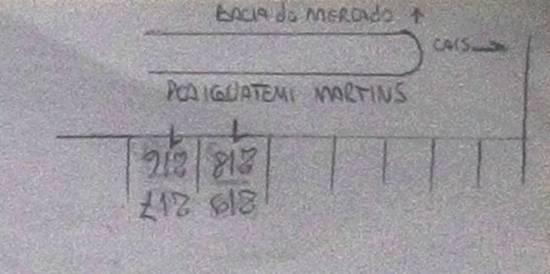 BACIA do MERCADO ↑
CAIS →
PÇA IGUATEMI MARTINS
216 218
217 219